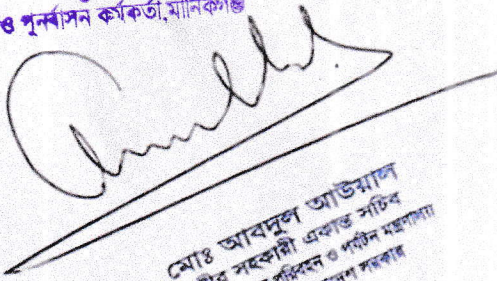 ও পুনর্বাসন কর্মকর্তা, মানিকগঞ্জ
মোঃ আবদুল আউয়াল
সহকারী একান্ত সচিব
পরিবহন ও পর্যটন মন্ত্রণালয়
সরকার